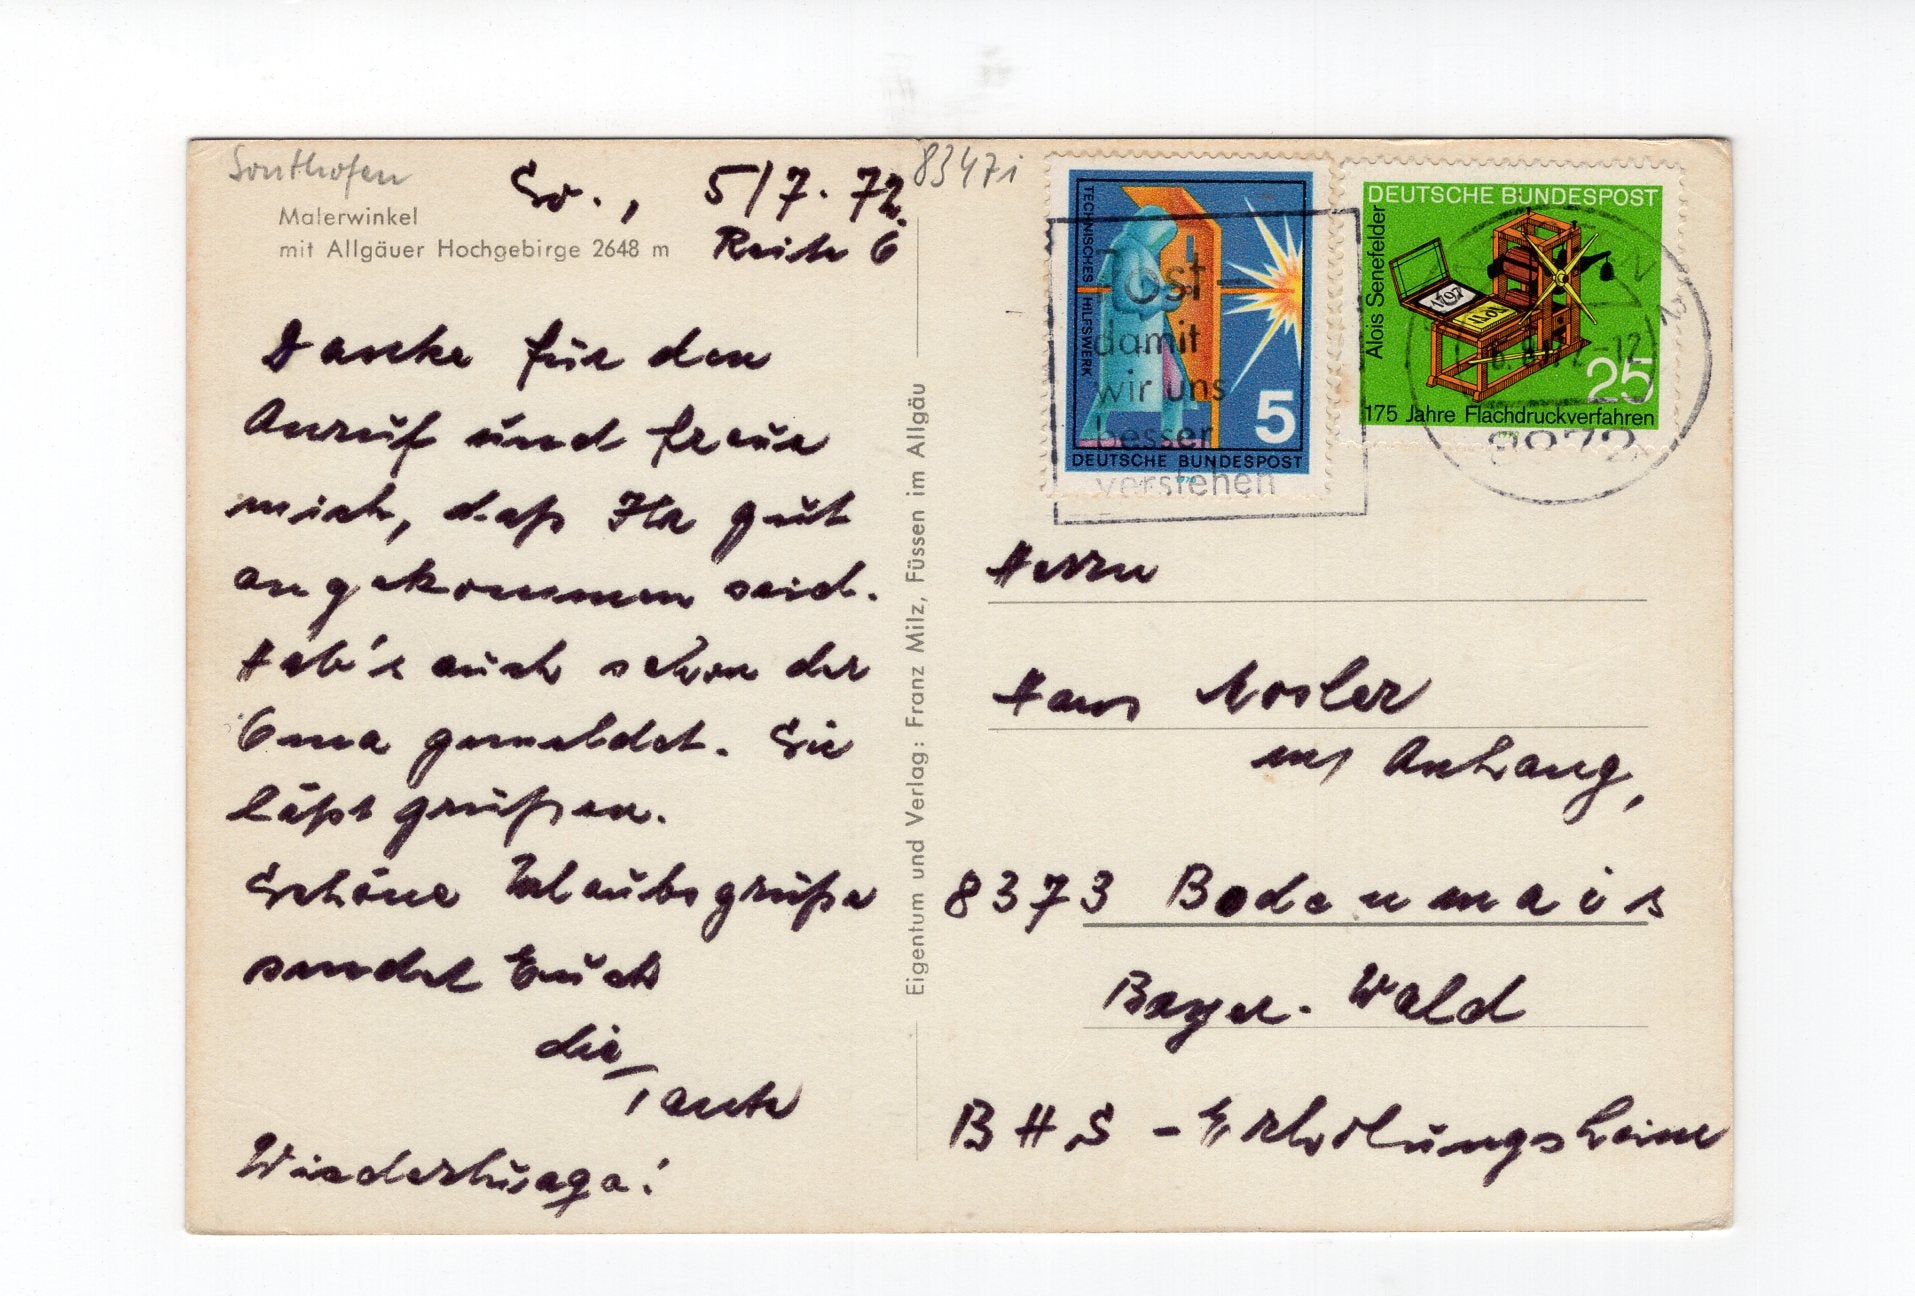 Sonthofen
Malerwinkel
mit Allgäuer Hochgebirge 2648 m
So., 5/7.72.
8347i
Danke für den
Anruf und freue
mich, daß Ihr gut
angekommen seid.
Hab's auch schon der
Oma gemeldet. Sie
läßt grüßen.
Schöne Urlaubsgrüße
sendet Euch
die
Tante
Eigentum und Verlag: Franz Milz, Füssen im Allgäu
TECHNISCHES HILFSWERK
5
DEUTSCHE BUNDESPOST
DEUTSCHE BUNDESPOST
Alois Senefelder
25
175 Jahre Flachdruckverfahren
Post -
damit
wir uns
besser
verstehen
8972
Herrn
Hans Mosler
mit Anhang,
8373 Bodenmais
Bayer. Wald
BHS - Erholungsheim